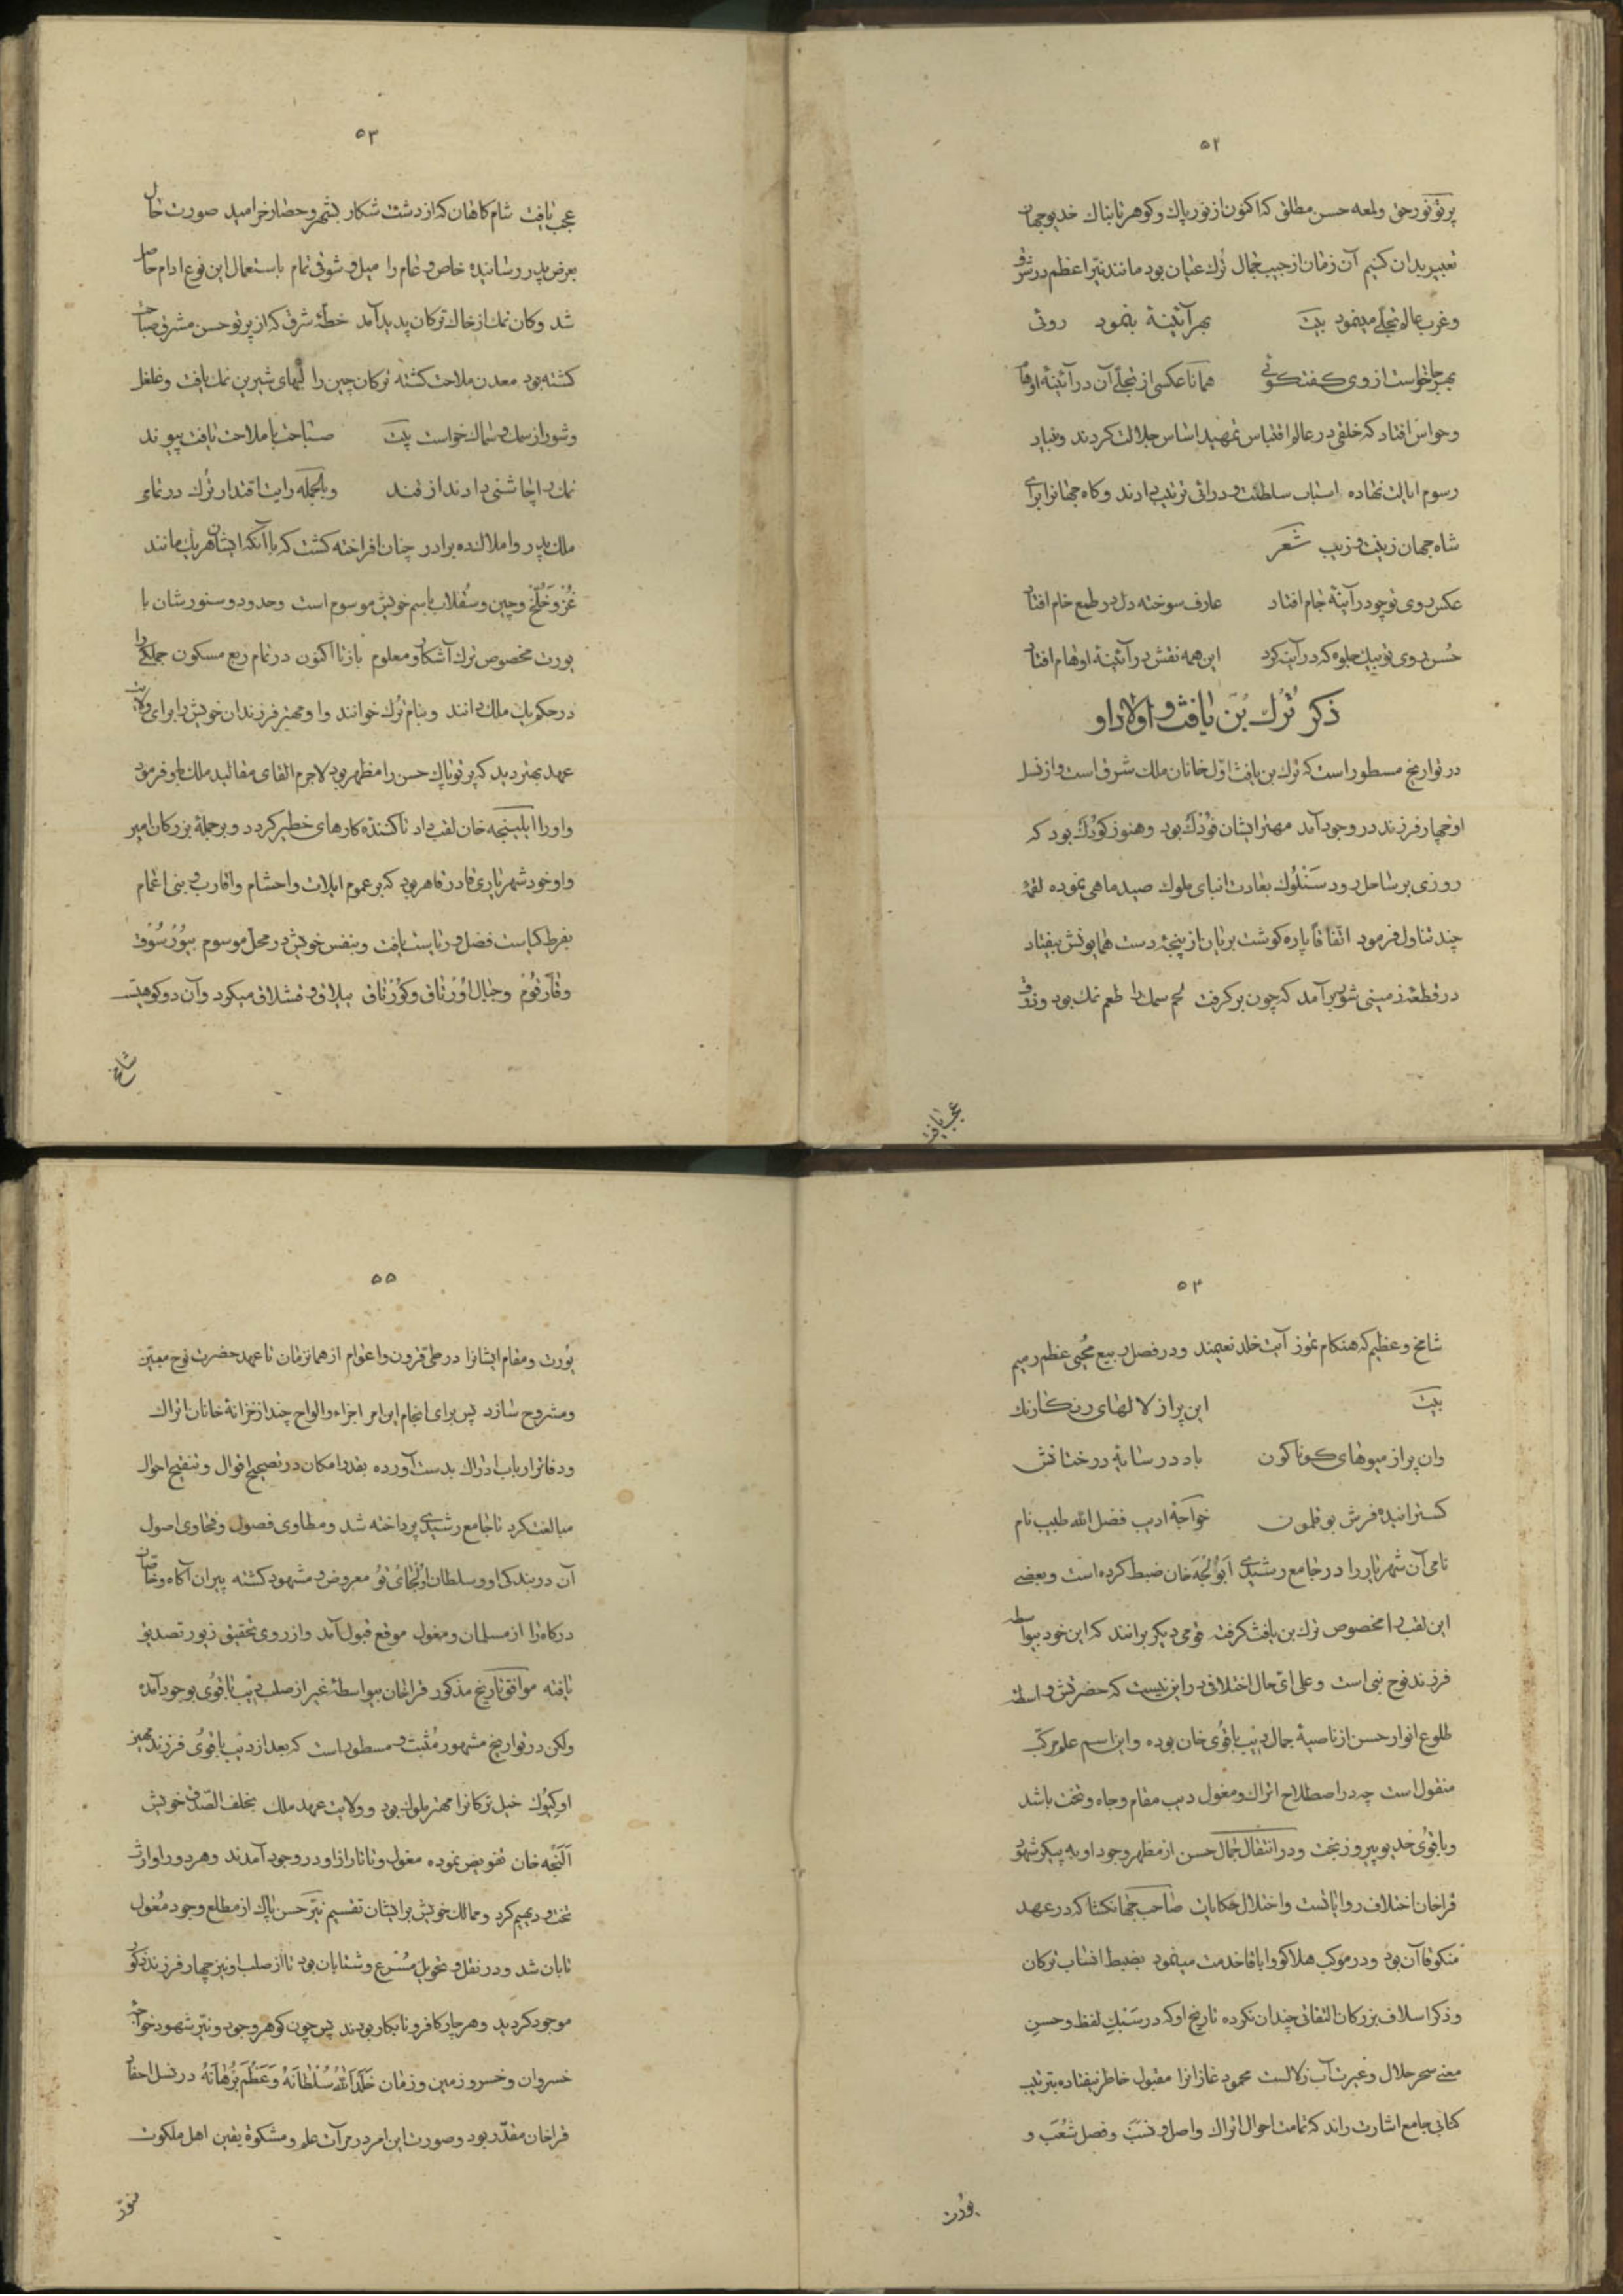 ۵۲
پرتو نور حق و لمعه حسن مطلق که اکنون از نور پاک و کوهر تابناک خدیو جهان
تعبیر بدان کنیم آن زمان از جیب جمال ترک عیان بود مانند نیر اعظم در شرق
و غرب عالم تجلی مینمود بیت بهر آئینهٔ بنمود روئی
بهر جا خواست از وی کفتکوئی همانا عکسی از تجلّی آن در آئینهٔ اوهام
و حواس افتاد که خلقی در عالم اقتباس تمهید اساس جلالت کردند و بنیاد
رسوم ایالت نهاده اسباب سلطنت و درائی ترتیب دادند و کاه جهانرا برای
شاه جهان زینت و زیب شعر
عکس روی تو چو در آینهٔ جام افتاد عارف سوخته دل در طمع خام افتاد
حُسن روی تو بیک جلوه که در آینه کرد این همه نقش در آئینهٔ اوهام افتاد
ذکر تُرک بن یافث و اولاد او
در تواریخ مسطور است که ترک بن یافث اوّل خانان ملک شرق است و از نسل
او چهار فرزند در وجود آمد مهتر ایشان فُوْدَک بود و هنوز کوْدَک بود که
روزی بر ساحل رود سَنْلُوک بعادت ابنای ملوک صید ماهی نموده لقمهٔ
چند تناول فرمود اتّفاقاً پاره کوشت بریان از پنجهٔ دست همایونش بیفتاد
در قطعهٔ زمینی شور برآمد که چون برکرفت لحم سمک را طعم نمک بود و ذوق
عجب یافت
۵۳
عجب یافت شام کاهان که از دشت شکار بشهر و حصار خرامید صورت حال
بعرض پدر رسانیده خاص و عام را میل و شوق تمام باستعمال این نوع ادام حاصل
شد و کان نمک از خاک ترکان پدید آمد خطّهٔ شرق که از پرتو حسن مشرق صباحت
کشته بود معدن ملاحت کشته ترکان چین را لبهای شیرین نمک یافت و غلغل
و شور از سمک و سماک خواست بیت صباحت با ملاحت یافت پیوند
نمک را چاشنی دادند از قند و بالجمله رایت اقتدار ترک در تمام
ملک پدر و املاک ده برادر چنان افراخته کشت که با آنکه ایشان هر یک مانند
غُز و خَلُّخ و چین و سقلاب باسم خویش موسوم است و حدود و سنور شان با
یورت مخصوص ترک آشکار و معلوم باز تا اکنون در تمام ربع مسکون جملکی را
در حکم یک ملک دانند و بنام تُرک خوانند و او مهتر فرزندان خویش را برای ولایت
عهد بهتر دید که پرتو پاک حسن را مظهر بود لاجرم القای مقالید ملک باو فرمود
و او را ابلینجه خان لقب داد تا کنندهٔ کارهای خطیر کردد و بر جملهٔ بزرکان امیر
و او خود شهریاری قادر قاهر بود که بر عموم ایلات و احشام و اقارب و بنی اعمام
بفرط کیاست فضل و ریاست یافت و بنفس خویش در محل موسوم ببُوْرْسُوْق
و قارقوُمْ و جبال اوُرْتاق و کوُرْتاق ییلاق و قشلاق میکرد و آن دو کوهیست
شامخ
۵۴
شامخ و عظیم که هنکام تموز آیت خلد نعیمند و در فصل ربیع مُحیی عظم رمیم
بیت این پر از لالهای رنکارنک
وان پر از میوهای کوناکون باد در سایهٔ درختانش
کسترانیده فرش بوقلمون خواجهٔ ادیب فضل الله طبیب نام
نامی آن شهریار را در جامع رشیدی اَبوُالُجَه خان ضبط کرده است و بعضی
این لقب را مخصوص ترک بن یافث کرفته قومی دیکر برانند که این خود بیواسطه
فرزند نوح نبی است و علی ای حال اختلاف در این نیست که حضرتش واسطهٔ
طلوع انوار حسن از ناصیهٔ جمال دیب باقوُی خان بوده و این اسم علم مرکّب
منقول است چه در اصطلاح اتراک و مغول دیب مقام و جاه و تخت باشد
و باقوُی خدیو پیروز بخت و در انتقال جمال حسن از مظهر وجود او به پیکر شهود
قراخان اختلاف روایاتست و اختلال حکایات صاحب جهانکشا که در عهد
منکوقاآن بود و در موکب هلاکو و اباقا خدمت مینمود بضبط انساب ترکان
و ذکر اسلاف بزرکان التفاتی چندان نکرده تاریخ او که در سَبْکِ لفظ و حسن
معنی سحر حلال و غیرت آب زلالست محمود غازانرا مقبول خاطر نیفتاده بترتیب
کتابی جامع اشارت راند که تمامت احوال اتراک و اصل و نَسَب و فصل شُعَب و
یوُرت
۵۵
یوُرت و مقام ایشانرا در طی قرون و اعوام از همانزمان تا عهد حضرت نوح معیّن
و مشروح سازد پس برای انجام این امر اجزاء و الواح چند از خزانهٔ خانان اتراک
و دفاتر ارباب ادراک بدست آورده بقدر امکان در تصحیح اقوال و تنقیح احوال
مبالغت کرد تا جامع رشیدی پرداخته شد و مطاوی فصول و فحاوی اصول
آن در بندکی او و سلطان اوُلْجایْتوُ معروض و مشهود کشته پیران آکاه و خاصان
درکاه را از مسلمان و مغول موقع قبول آمد و از روی تحقیق زیور تصدیق
یافته موافق تاریخ مذکور قراخان بیواسطهٔ غیر از صلب دیب باقوُی بوجود آمده
ولکن در تواریخ مشهور مُثبت و مسطور است که بعد از دیب باقوُی فرزند مهتر
او کیُوک خیل ترکانرا مهتر ملوک بود و ولایت عهد ملک بخلف الصّدق خویش
اَلَنْجَه خان تفویض نموده مغول و تاتار از او در وجود آمدند و هر دو را وارث
تخت و دیهیم کرد و ممالک خویش برایشان تقسیم نیّر حسن پاک از مطلع وجود مُغول
تابان شد و در نقل و تحویل مُسْرع و شتابان بود تا از صلب او نیز چهار فرزند ذکور
موجود کردید و هر چار کافر و نابکار بودند پس چون کوهر وجود و نیّر شهود خواجهٔ
خسروان و خسرو زمین و زمان خَلَّدَ اللّهُ سُلْطانَهُ وَ عَظَّمَ بُرْهانَهُ در نسل احفاد
قراخان مقدّر بود و صورت این امر در مرآت علم و مشکوة یقین اهل ملکوت